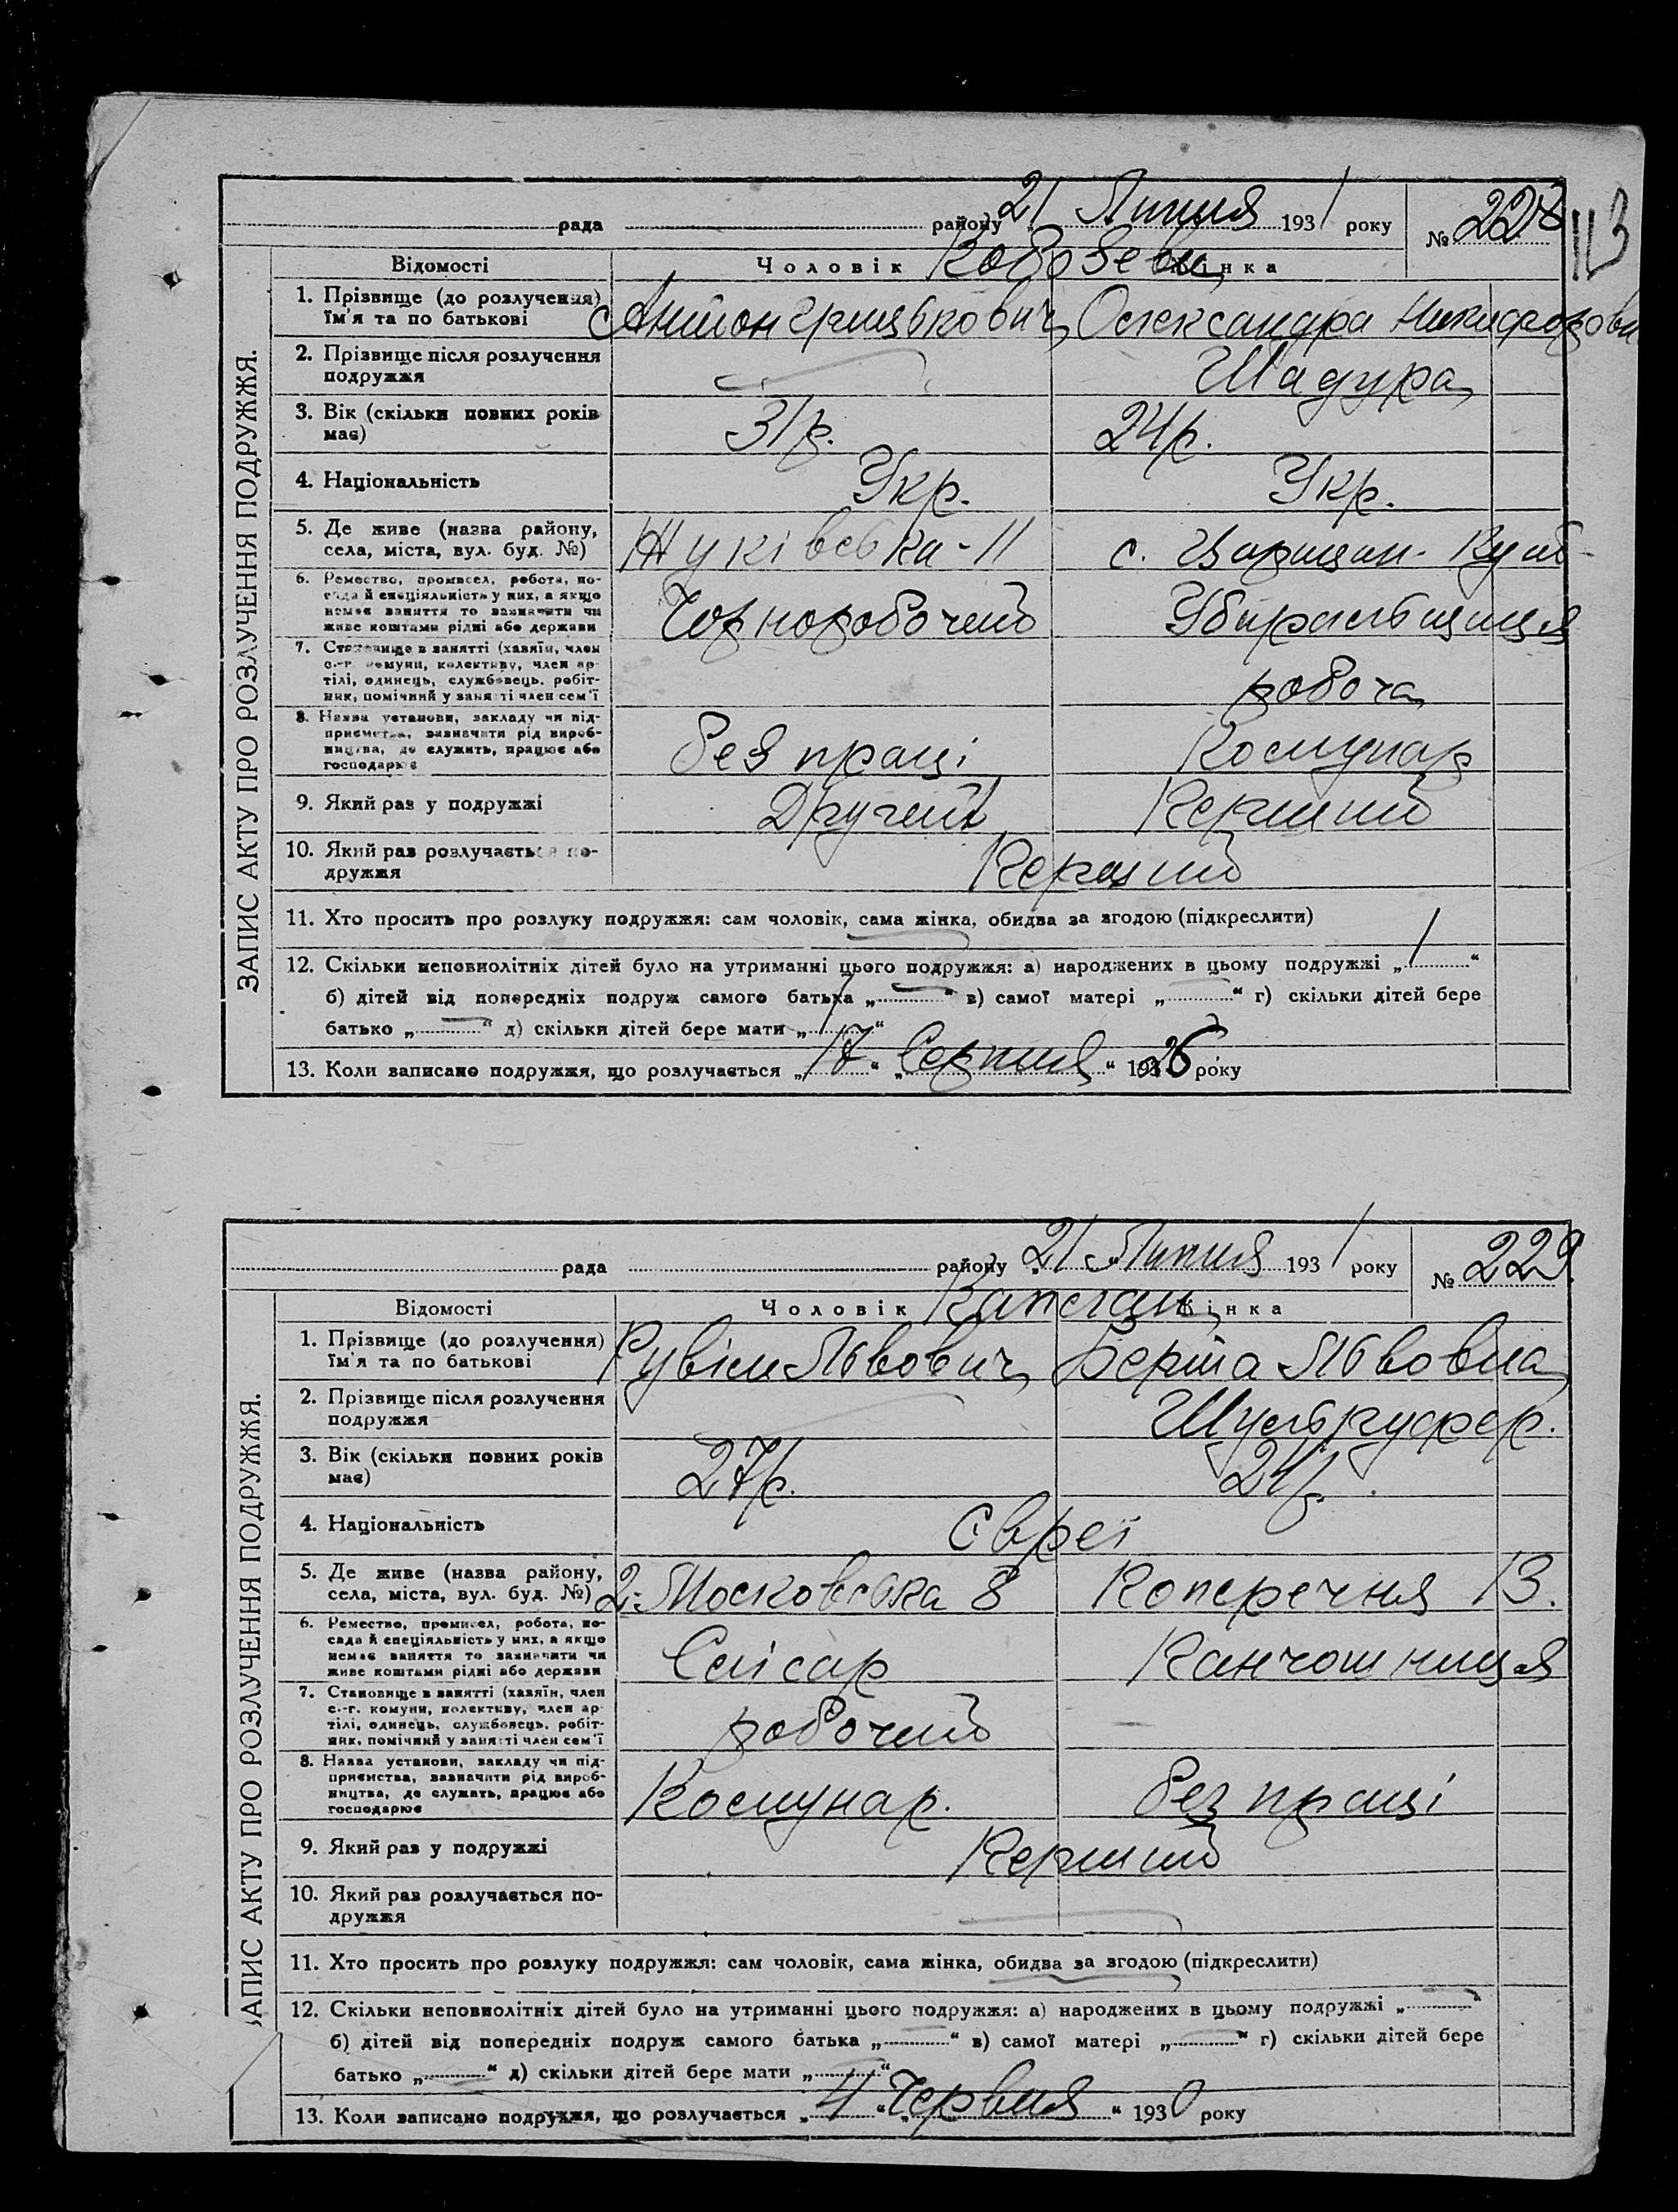 113
ЗАПИС АКТУ ПРО РОЗЛУЧЕННЯ ПОДРУЖЖЯ.
рада району 21 Липня 1931 року № 228
Відомості Чоловік Жінка
1. Прізвище (до розлучення) їм'я та по батькові
Антон Грицькович Олександра Никифоровн
2. Прізвище після розлучення подружжя
Шадура
3. Вік (скільки повних років має)
31 р. 24 р.
4. Національність
Укр. Укр.
5. Де живе (назва району, села, міста, вул. буд. №)
Жуківська-11 с. Царицин- Кут-
6. Ремество, промисел, робота, посада й спеціяльність у них, а якщо
немає заняття то зазначити чи
живе коштами рідні або держави
Чорноробочий Убиральщиця
7. Становище в занятті (хазяїн, член
с.-г. комуни, колективу, член ар-
тілі, одинець, службовець, робіт-
ник, помічний у занятті член сем'ї
робоча
8. Назва установи, закладу чи під-
приємства, зазначити рід вироб-
ництва, де служить, працює або
господарює
без праці Комунар
9. Який раз у подружжі
Другий Перший
10. Який раз розлучається по-
дружжя
Перший
11. Хто просить про розлуку подружжя: сам чоловік, сама жінка, обидва за згодою (підкреслити)
12. Скільки неповнолітніх дітей було на утриманні цього подружжя: а) народжених в цьому подружжі „1“
б) дітей від попередніх подруж самого батька „—“ в) самої матері „—“ г) скільки дітей бере
батько „—“ д) скільки дітей бере мати „1“
13. Коли записано подружжя, що розлучається „17“ „Серпня“ 1926 року
АПИС АКТУ ПРО РОЗЛУЧЕННЯ ПОДРУЖЖЯ.
рада району 21 Липня 1931 року № 229.
Відомості Чоловік Каплан Жінка
1. Прізвище (до розлучення) їм'я та по батькові
Рувін Львович Берта Львовна
2. Прізвище після розлучення
подружжя
3. Вік (скільки повних років
має)
27 р.
4. Національність
Євреї
5. Де живе (назва району,
села, міста, вул. буд. №)
2-Московська 8 Поперечня 13.
6. Ремество, промисел, робота, по-
сада й спеціяльність у них, а якщо
немає заняття то зазначити чи
живе коштами рідні або держави
Слісар Панчошниця
7. Становище в занятті (хазяїн, член
с.-г. комуни, колективу, член ар-
тілі, одинець, службовець, робіт-
ник, помічний у занятті член сем'ї
робочий —
8. Назва установи, закладу чи під-
приємства, зазначити рід вироб-
ництва, де служить, працює або
господарює
Комунар. без праці
9. Який раз у подружжі
Перший
10. Який раз розлучається по-
дружжя
11. Хто просить про розлуку подружжя: сам чоловік, сама жінка, обидва за згодою (підкреслити)
12. Скільки неповнолітніх дітей було на утриманні цього подружжя: а) народжених в цьому подружжі „—“
б) дітей від попередніх подруж самого батька „—“ в) самої матері „—“ г) скільки дітей бере
батько „—“ д) скільки дітей бере мати „—“
13. Коли записано подружжя, що розлучається „4“ „Червня“ 1930 року